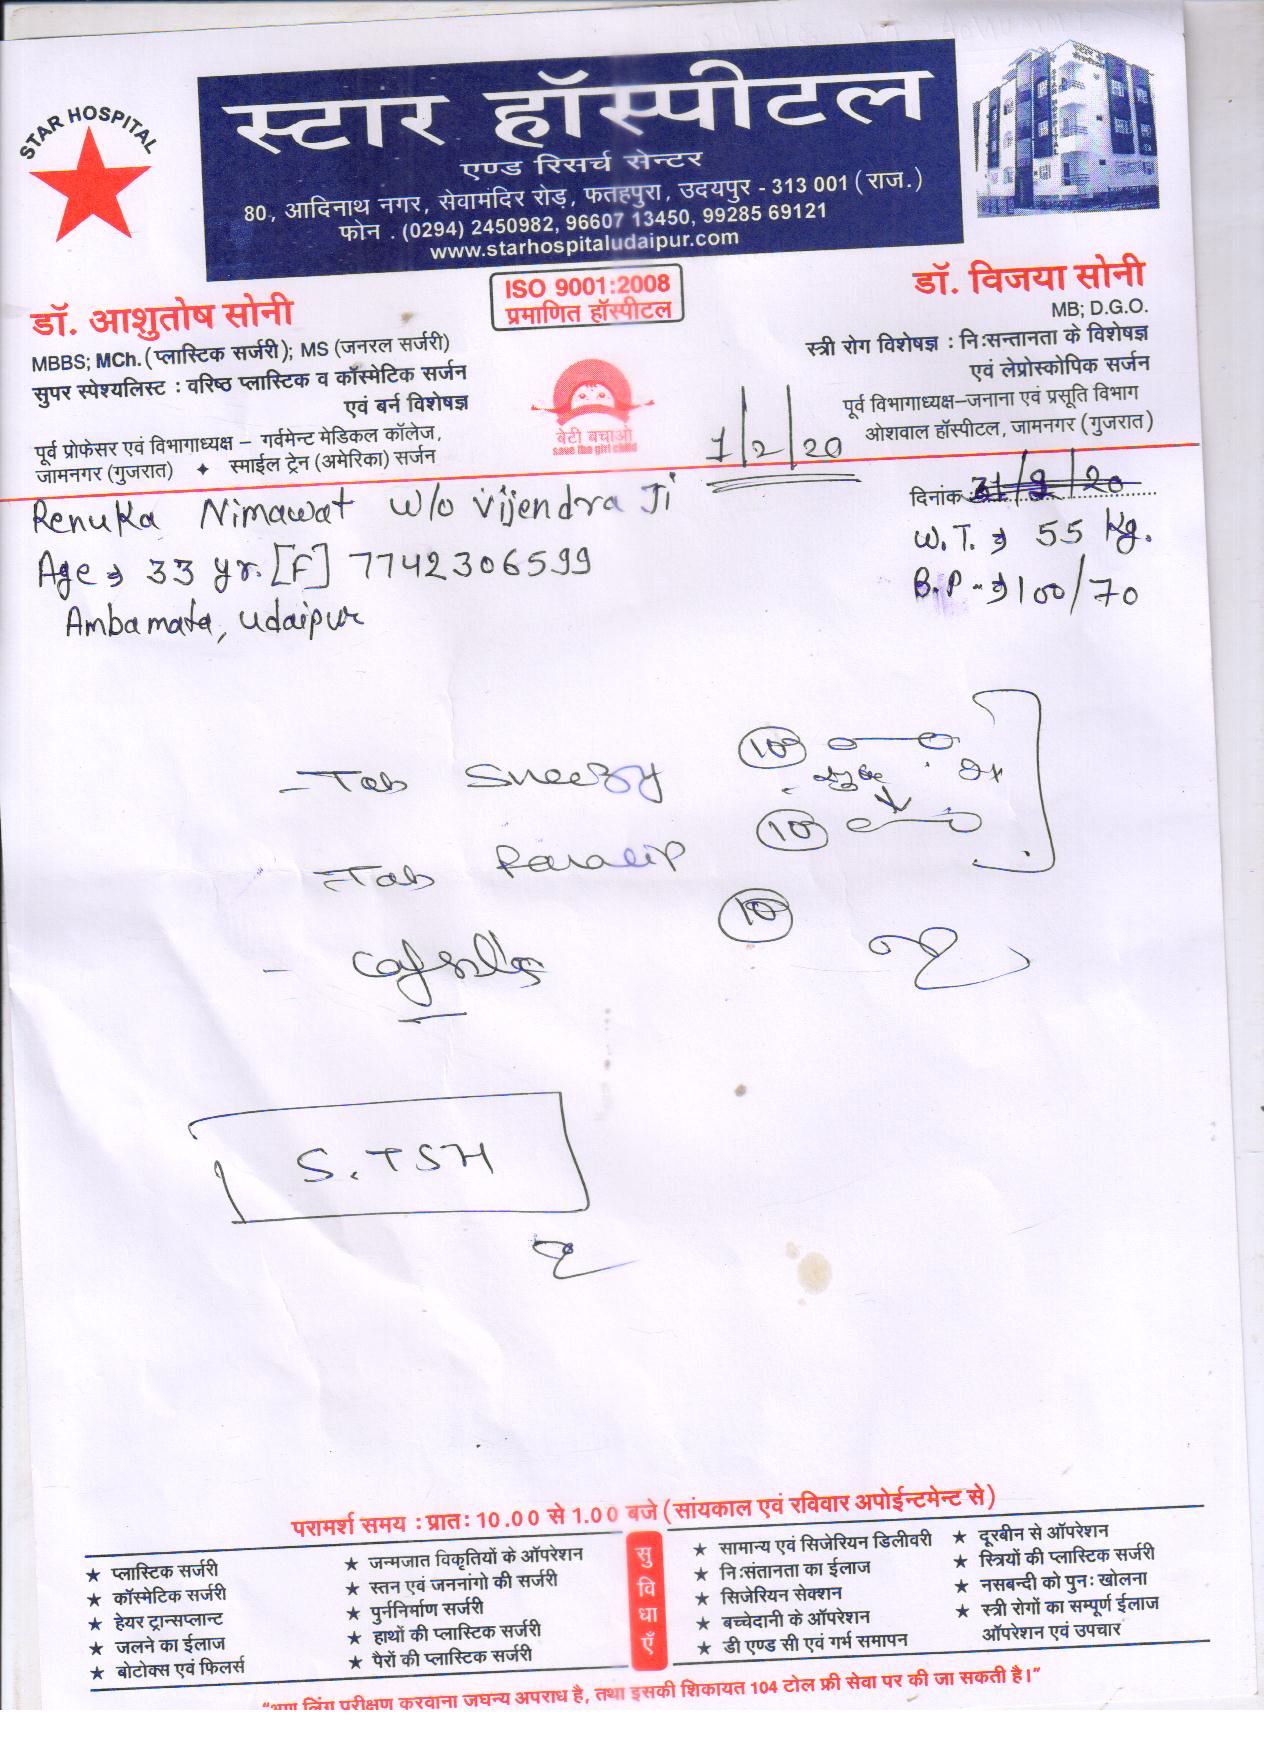 STAR HOSPITAL
स्टार हॉस्पीटल
एण्ड रिसर्च सेन्टर
80, आदिनाथ नगर, सेवामंदिर रोड़, फतहपुरा, उदयपुर - 313 001 (राज.)
फोन . (0294) 2450982, 96607 13450, 99285 69121
www.starhospitaludaipur.com
ISO 9001:2008
प्रमाणित हॉस्पीटल
डॉ. आशुतोष सोनी
MBBS; MCh. (प्लास्टिक सर्जरी); MS (जनरल सर्जरी)
सुपर स्पेश्यलिस्ट : वरिष्ठ प्लास्टिक व कॉस्मेटिक सर्जन
एवं बर्न विशेषज्ञ
पूर्व प्रोफेसर एवं विभागाध्यक्ष – गर्वमेन्ट मेडिकल कॉलेज,
जामनगर (गुजरात) ✦ स्माईल ट्रेन (अमेरिका) सर्जन
बेटी बचाओ
save the girl child
डॉ. विजया सोनी
MB; D.G.O.
स्त्री रोग विशेषज्ञ : निःसन्तानता के विशेषज्ञ
एवं लेप्रोस्कोपिक सर्जन
पूर्व विभागाध्यक्ष–जनाना एवं प्रसूति विभाग
ओशवाल हॉस्पीटल, जामनगर (गुजरात)
7/2/20
दिनांक
Renuka Nimawat w/o Vijendra Ji
Age → 33 yr. [F] 7742306599
Ambamata, Udaipur
W.T. → 55 Kg.
B.P → 100/70
- Tab Sneezy 10
- Tab 10
- 10
S. TSH
परामर्श समय : प्रातः 10.00 से 1.00 बजे (सांयकाल एवं रविवार अपोईन्टमेन्ट से)
★ प्लास्टिक सर्जरी
★ कॉस्मेटिक सर्जरी
★ हेयर ट्रान्सप्लान्ट
★ जलने का ईलाज
★ बोटोक्स एवं फिलर्स
★ जन्मजात विकृतियों के ऑपरेशन
★ स्तन एवं जननांगो की सर्जरी
★ पुर्ननिर्माण सर्जरी
★ हाथों की प्लास्टिक सर्जरी
★ पैरों की प्लास्टिक सर्जरी
सुविधाएँ
★ सामान्य एवं सिजेरियन डिलीवरी
★ निःसंतानता का ईलाज
★ सिजेरियन सेक्शन
★ बच्चेदानी के ऑपरेशन
★ डी एण्ड सी एवं गर्भ समापन
★ दूरबीन से ऑपरेशन
★ स्त्रियों की प्लास्टिक सर्जरी
★ नसबन्दी को पुनः खोलना
★ स्त्री रोगों का सम्पूर्ण ईलाज
ऑपरेशन एवं उपचार
"भ्रूण लिंग परीक्षण करवाना जघन्य अपराध है, तथा इसकी शिकायत 104 टोल फ्री सेवा पर की जा सकती है।"